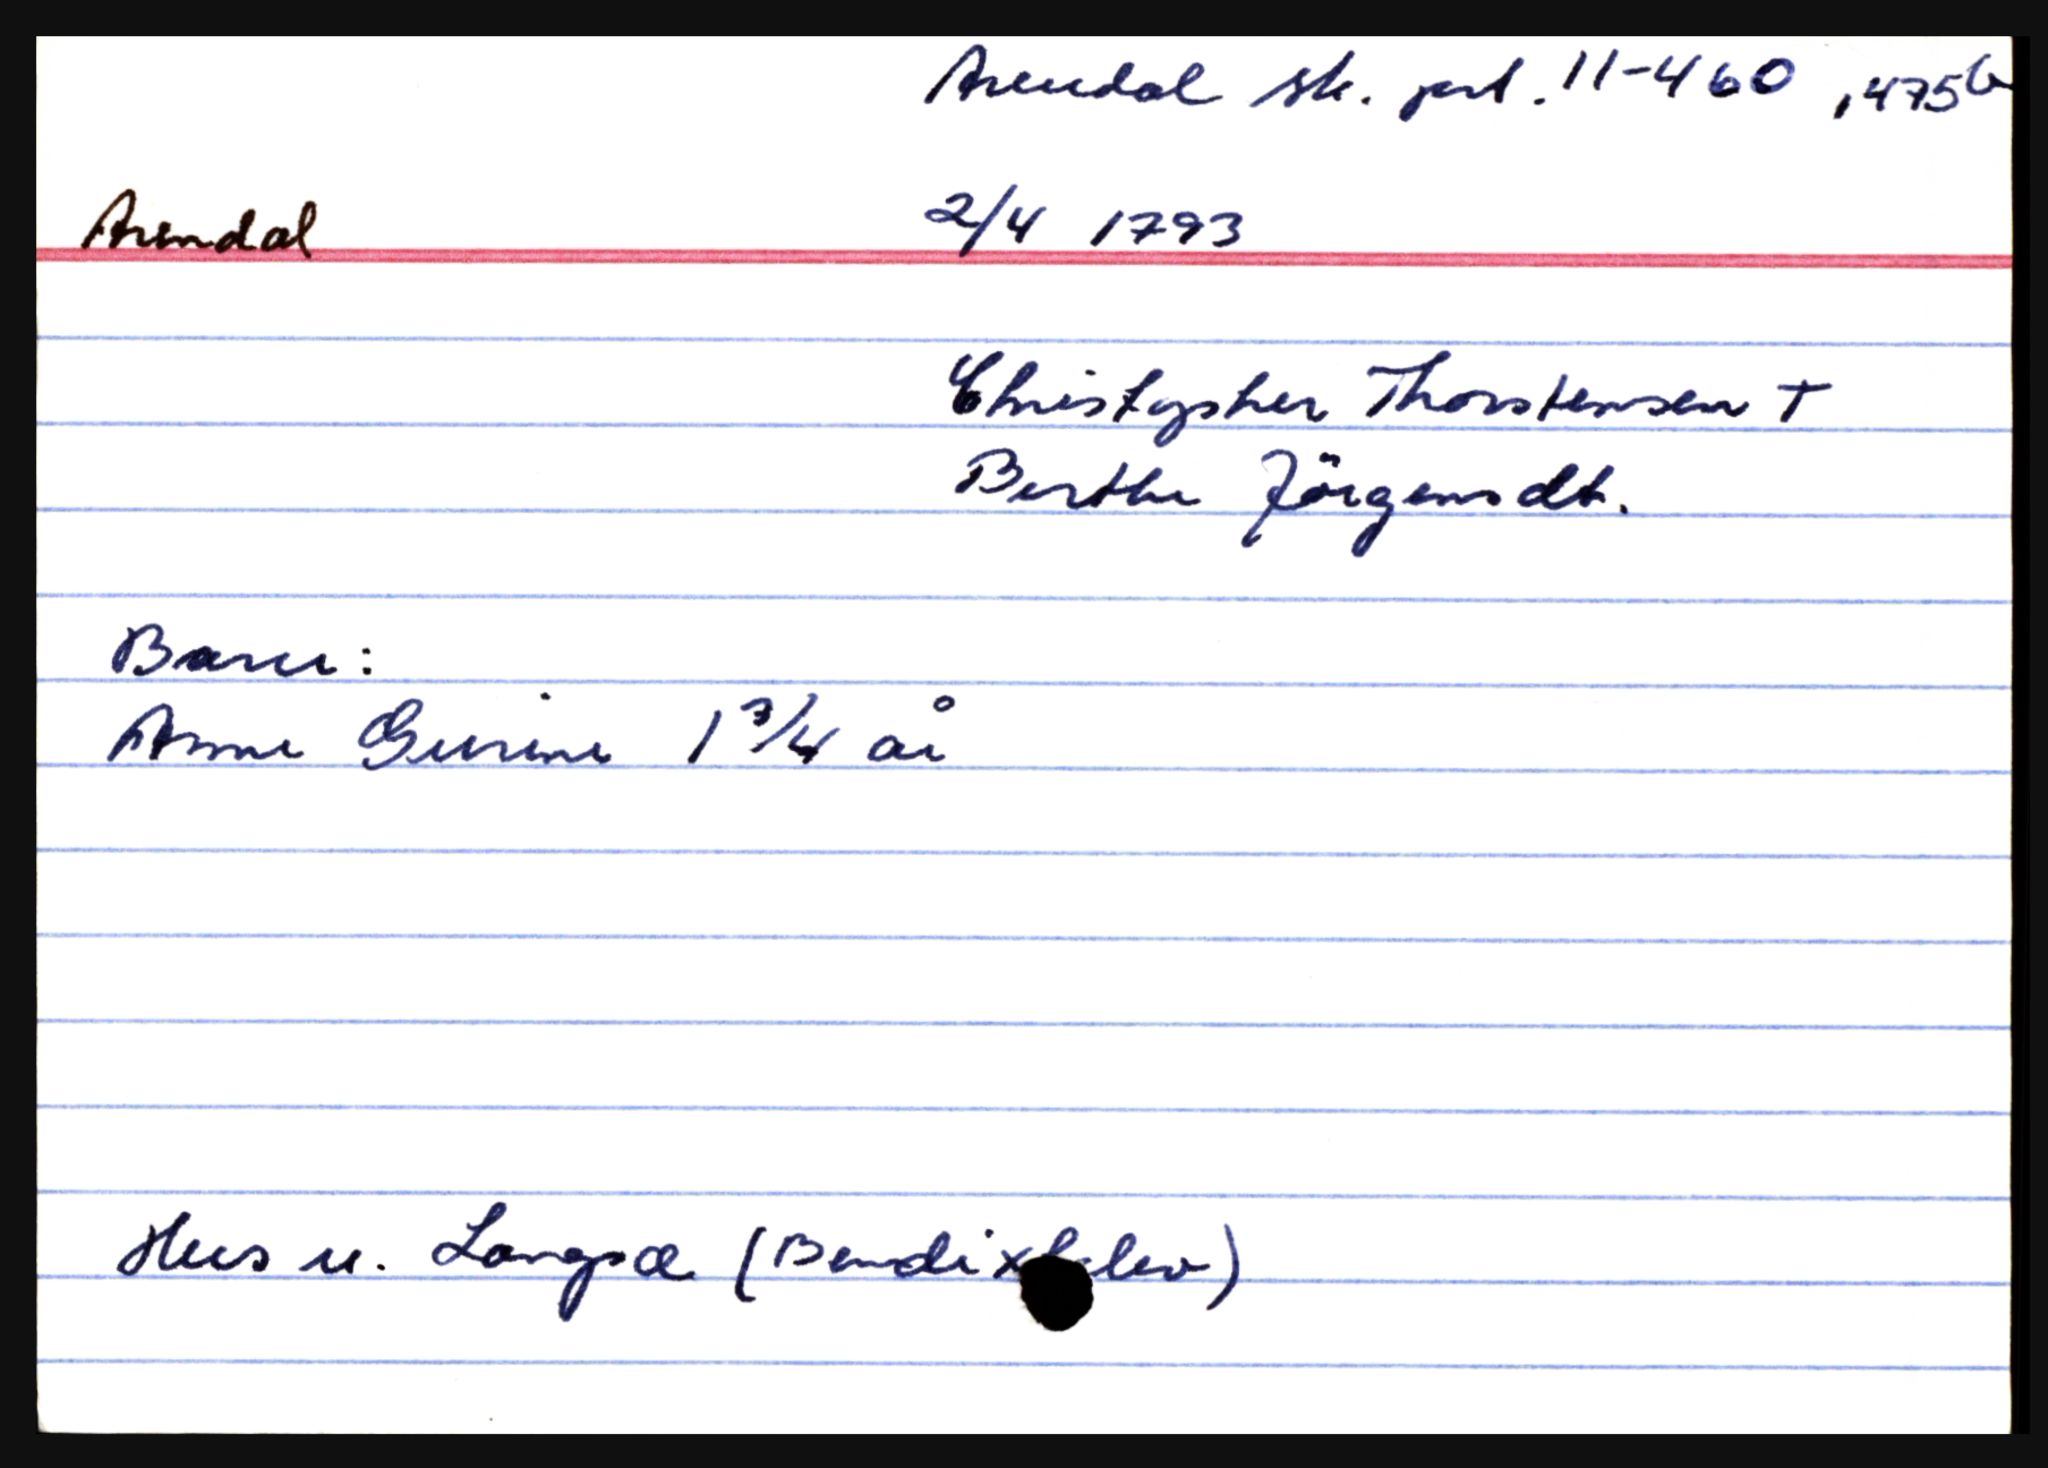 Arendal sk. prt. 11-460, 475b
Arendal 2/4 1793
Christopher Thorstensen +
Berthe Jörgensdt.
Barn:
Anne Gurine 1 3/4 år
Hus u. Langsæ (Bendixklev)